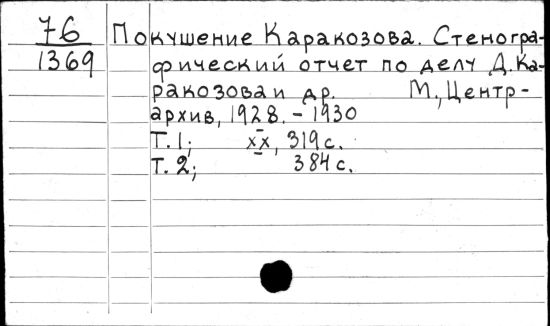 76
1369
Покушение Каракозова. Стеногра-
фический отчет по делу Д.Ка-
ракозова и др. М., Центр-
архив, 1928. - 1930
Т. 1; XX, 319 с.
Т. 2; 384 с.